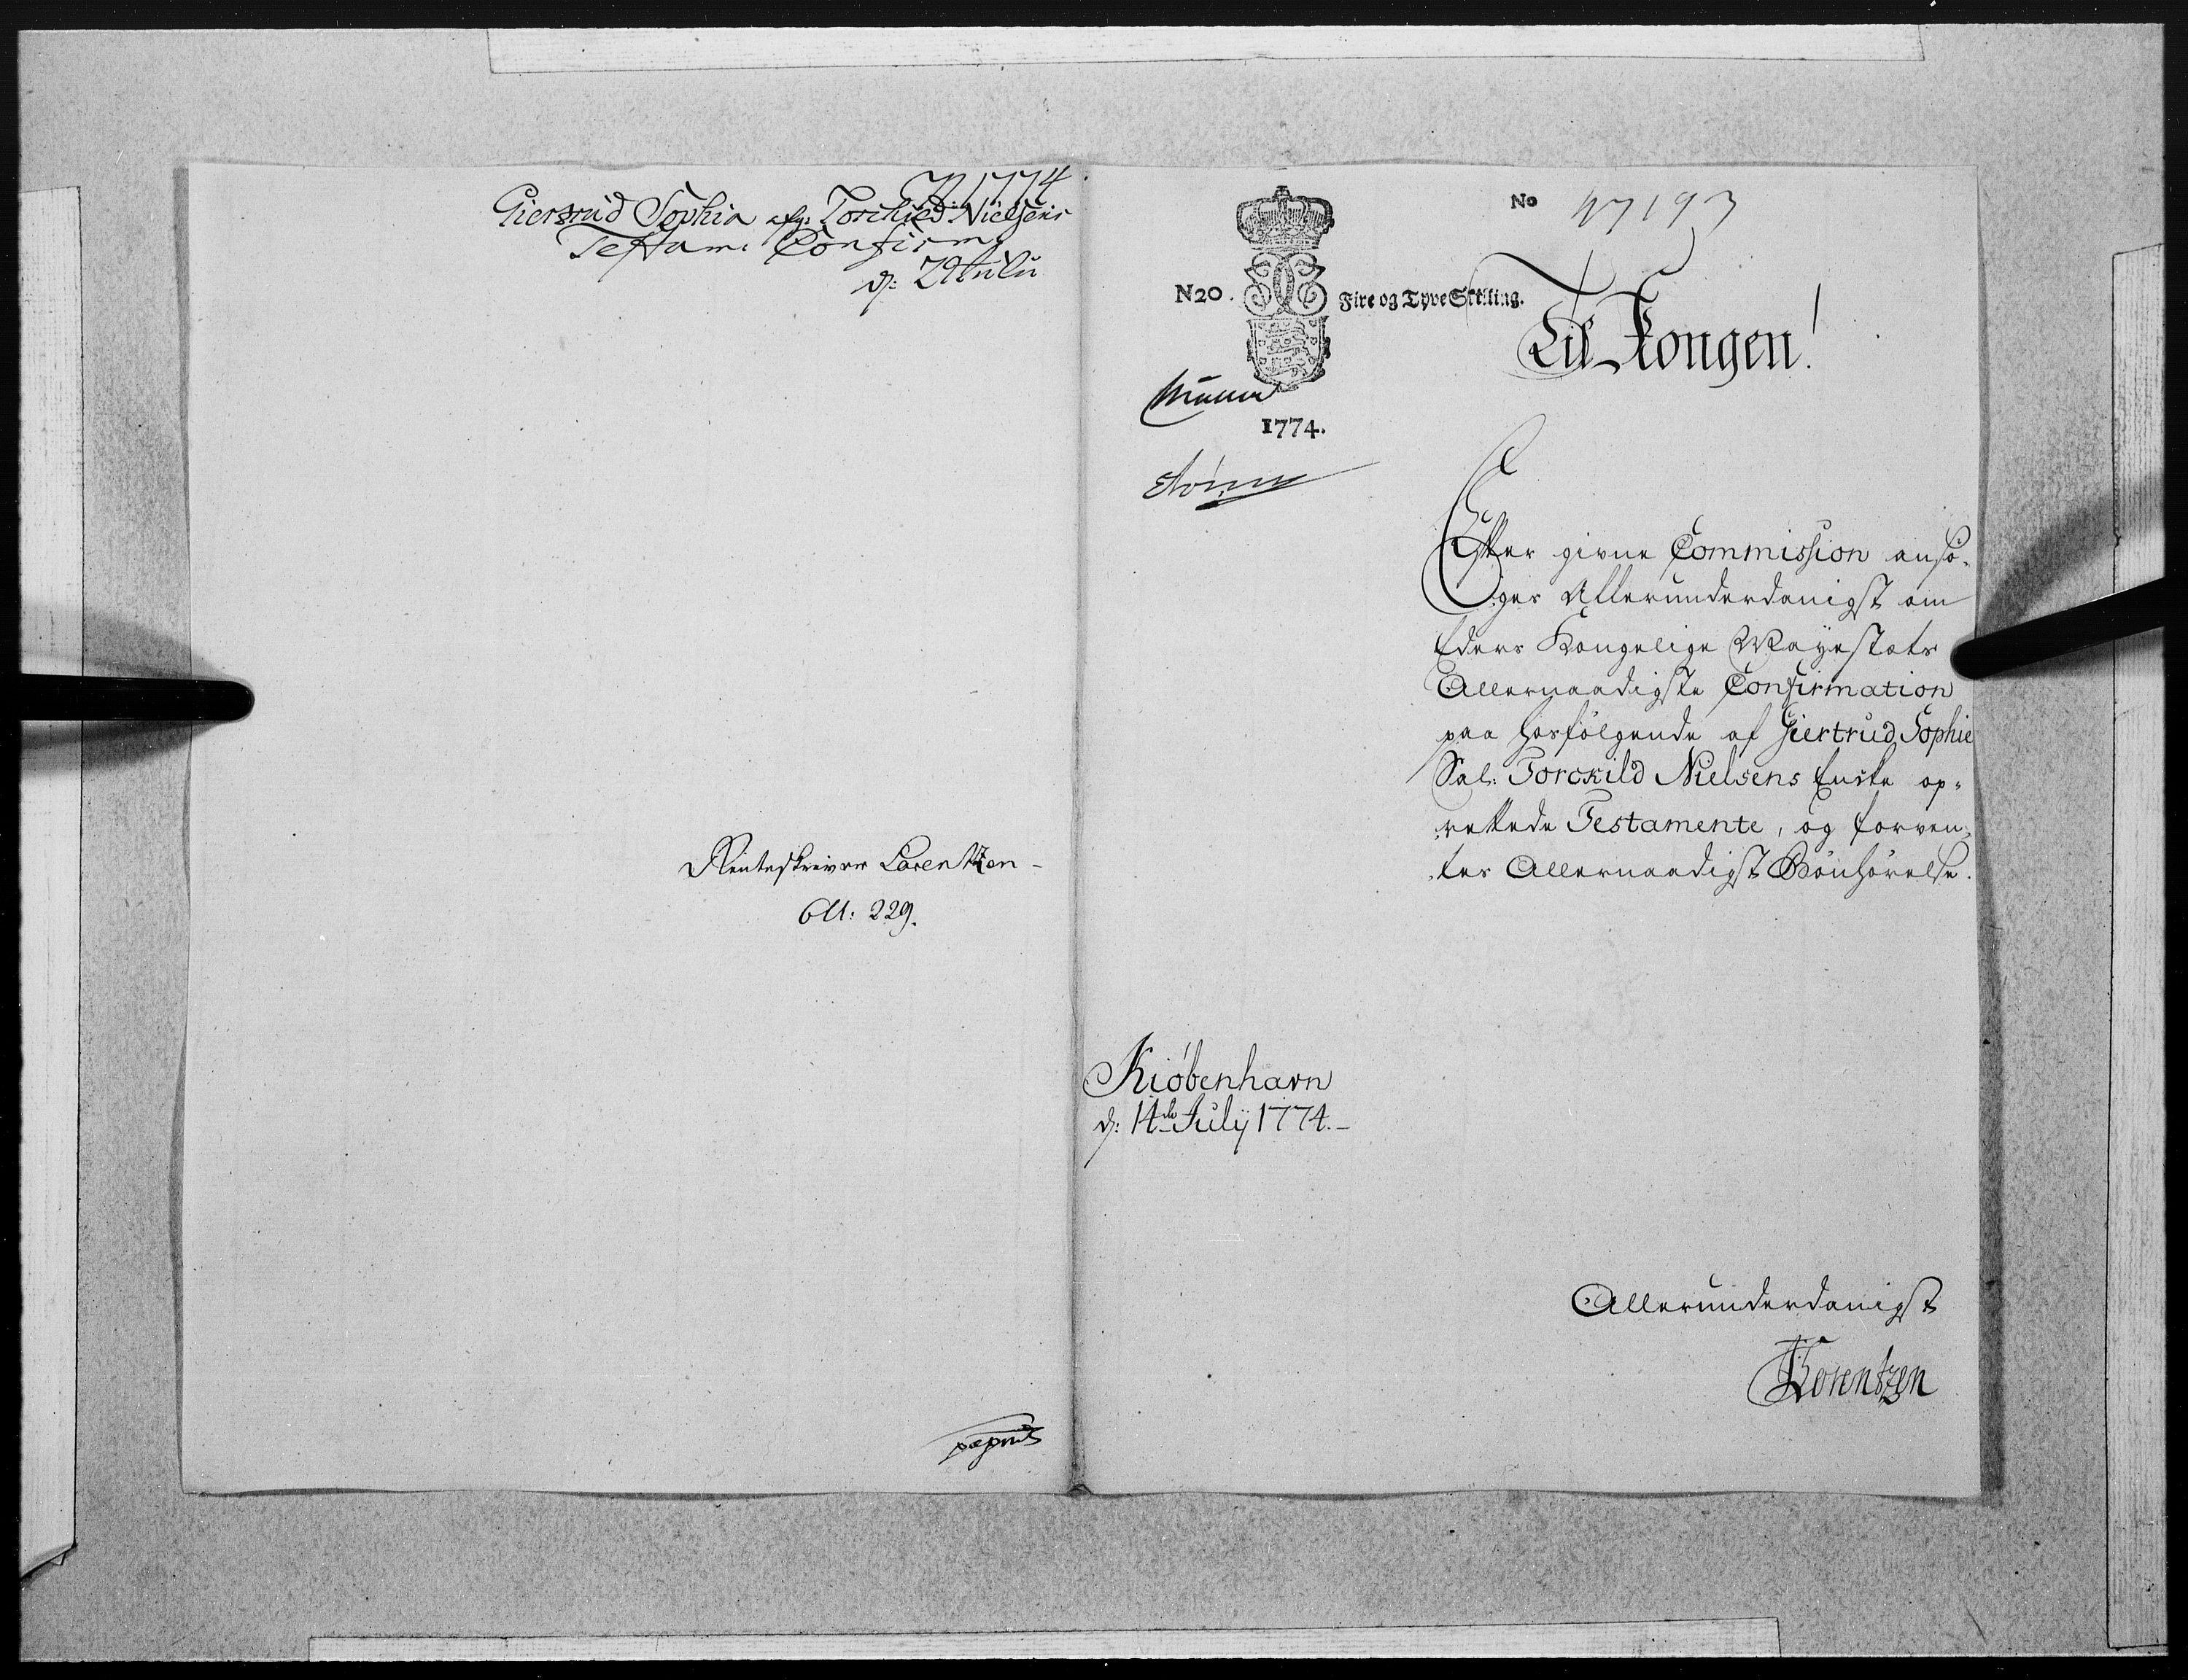 1774
Giertrud Sophia afg: Torchild Nielsens
Testam: Confirm
d: 29 Julii
Renteskriver Lorentzen
Ol: 229.
No 47193
N20. Fire og Tyve Skilling.
Til Kongen!
1774.
Efter givne Commission ansø-
ges Allerunderdanigst om
Eders Kongelige Mayestæts
Allernaadigste Confirmation
paa hosfølgende af Giertrud Sophie
Sal: Torckild Nielsens Enke op-
rettede Testamente, og forven-
tes Allernaadigst Bønhørelse.
Kiøbenhavn
d: 14de Julij 1774.
Allerunderdanigst
Lorentzen